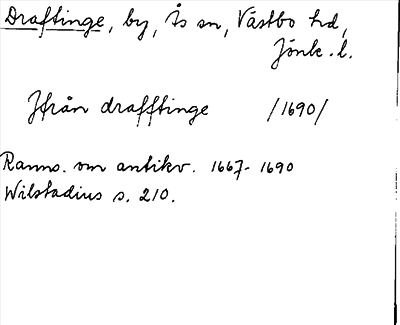 Draftinge, by, Ås sn, Västbo hd,
Jönk. l.
Jfrån drafftinge /1690/
Ranns. om antikv. 1667-1690
Wilstadius s. 210.